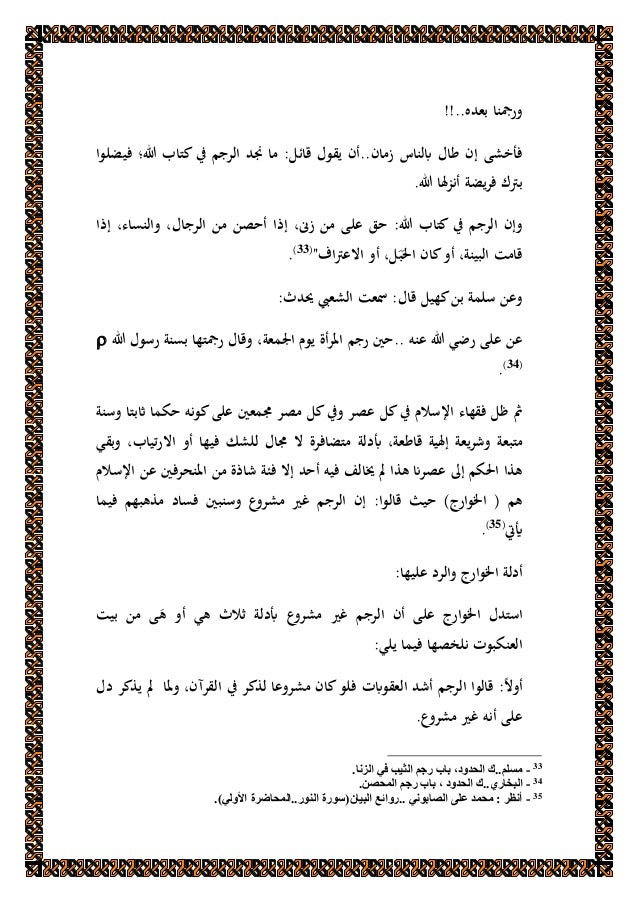 ورجمنا بعده..!!
فأخشى إن طال بالناس زمان..أن يقول قائل: ما نجد الرجم في كتاب الله؛ فيضلوا
بترك فريضة أنزلها الله.
وإن الرجم في كتاب الله: حق على من زنى، إذا أحصن من الرجال، والنساء، إذا
قامت البينة، أو كان الحَبَل، أو الاعتراف"(33).
وعن سلمة بن كهيل قال: سمعت الشعبي يحدث:
عن على رضي الله عنه ..حين رجم المرأة يوم الجمعة، وقال رجمتها بسنة رسول الله ρ
(34).
ثم ظل فقهاء الإسلام في كل عصر وفي كل مصر مجمعين على كونه حكما ثابتا وسنة
متبعة وشريعة إلهية قاطعة، بأدلة متضافرة لا مجال للشك فيها أو الارتياب، وبقي
هذا الحكم إلى عصرنا هذا لم يخالف فيه أحد إلا فئة شاذة من المنحرفين عن الإسلام
هم ( الخوارج) حيث قالوا: إن الرجم غير مشروع وسنبين فساد مذهبهم فيما
يأتي(35).
أدلة الخوارج والرد عليها:
استدل الخوارج على أن الرجم غير مشروع بأدلة ثلاث هي أو هَى من بيت
العنكبوت نلخصها فيما يلي:
أولاً: قالوا الرجم أشد العقوبات فلو كان مشروعا لذكر في القرآن، ولما لم يذكر دل
على أنه غير مشروع.
33 - مسلم..ك الحدود، باب رجم الثيب في الزنا.
34 - البخاري..ك الحدود ، باب رجم المحصن.
35 - أنظر : محمد على الصابوني ..روائع البيان(سورة النور..المحاضرة الأولي).